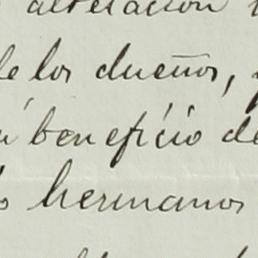 alteración
de los dueños,
beneficio de
hermanos